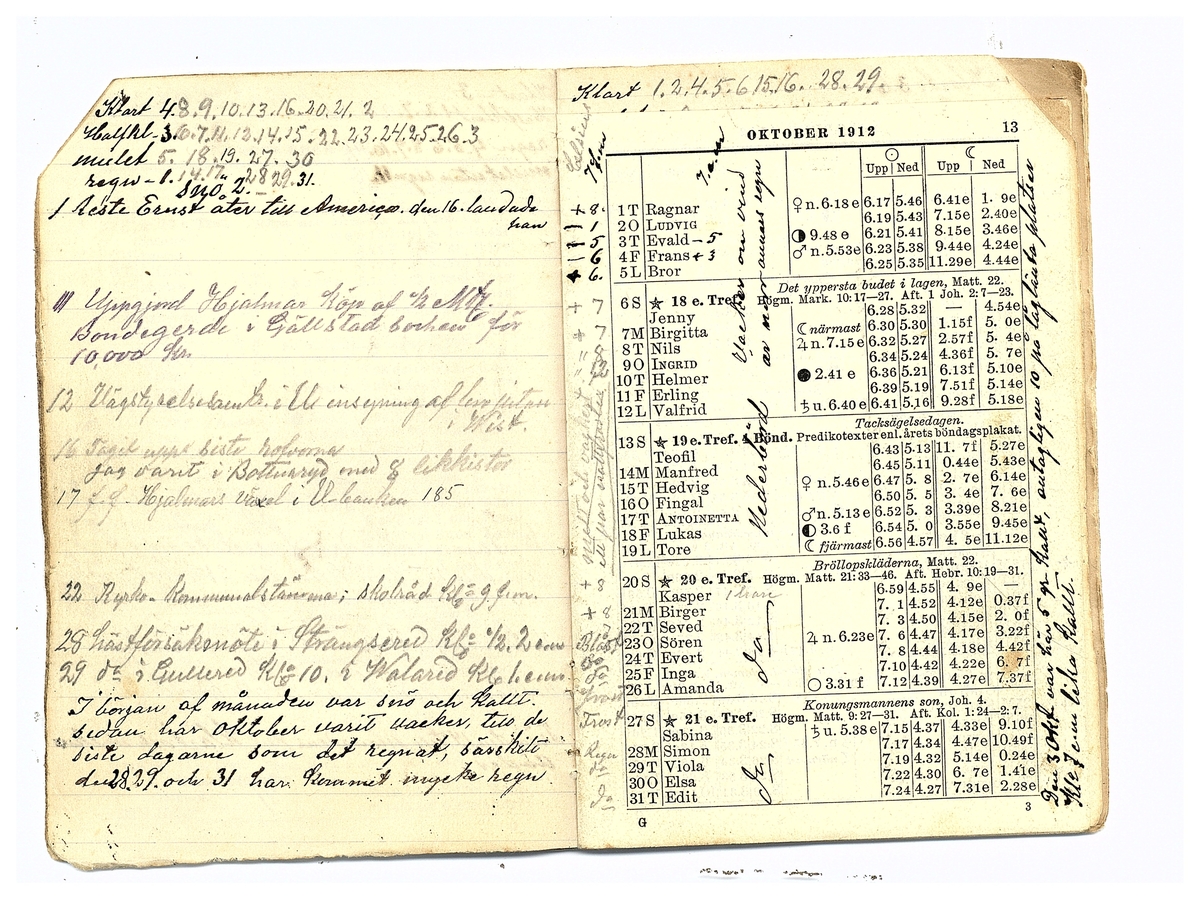 Klart 4.8.9.10.13.16.20.21.2
Halfkl-3.6.7.11.12.14.15.22.23.24.25.26.3
mulet 5. 18.19. 27. 30
regn-1.14.17. 28 29.31.
snö 2.
1 reste Ernst åter till America. den 16. landade
han
11 Uppgjord Hjalmar Köp af 1/2 Mtl.
Bondegerde i Gällstad Socken för
10,000 Kr.
12 af
i Wist.
16 Taget upp siste
Jag varit i Bottnaryd med 8 likkistor
17 f.f. Hjalmars växel i U-banken 185
22 Kyrko- Kommunalstämma; skolråd Kl 9 f.m.
28 hästförsäkmöte i Strängsered Kl 1/2. 2 em
29 do i Gullered Kl 10. i Wålared Kl. 1 em
I början af månaden var snö och Kallt.
sedan har oktober varit vacker, tils de
siste dagarne som det regnat, särskilt
den 28.29. och 31 har kommit mycke regn
Klart 1.2.4.5.6.15.16. 28.29.
OKTOBER 1912
13
Upp Ned Upp Ned
+8. 1 T Ragnar ♀ n. 6.18 e 6.17 5.46 6.41e 1. 9e
- 1 2 O LUDVIG 6.19 5.43 7.15e 2.40e
- 5 3 T Evald - 5 9.48 e 6.21 5.41 8.15e 3.46e
- 6 4 F Frans + 3 ♂ n. 5.53e 6.23 5.38 9.44e 4.24e
+ 6. 5 L Bror 6.25 5.35 11.29e 4.44e
Det yppersta budet i lagen, Matt. 22.
+ 7 6 S 18 e. Tref. Högm. Mark. 10:17—27. Aft. 1 Joh. 2:7—23.
Jenny 6.28 5.32 — 4.54e
+ 7 7 M Birgitta ☾ närmast 6.30 5.30 1.15f 5. 0e
8 T Nils ♃ n. 7.15 e 6.32 5.27 2.57f 5. 4e
9 O INGRID 6.34 5.24 4.36f 5. 7e
10 T Helmer ● 2.41 e 6.36 5.21 6.13f 5.10e
11 F Erling 6.39 5.19 7.51f 5.14e
12 L Valfrid ♄ u. 6.40 e 6.41 5.16 9.28f 5.18e
Tacksägelsedagen.
13 S 19 e. Tref. 4 Bönd. Predikotexter enl. årets böndagsplakat.
Teofil 6.43 5.13 11. 7f 5.27e
14 M Manfred 6.45 5.11 0.44e 5.43e
15 T Hedvig ♀ n. 5.46 e 6.47 5. 8 2. 7e 6.14e
16 O Fingal 6.50 5. 5 3. 4e 7. 6e
17 T ANTOINETTA ♂ n. 5.13 e 6.52 5. 3 3.39e 8.21e
18 F Lukas 3.6 f 6.54 5. 0 3.55e 9.45e
19 L Tore ☾ fjärmast 6.56 4.57 4. 5e 11.12e
Bröllopskläderna, Matt. 22.
+ 8 20 S 20 e. Tref. Högm. Matt. 21:33—46. Aft. Hebr. 10:19—31.
Kasper 1 hare 6.59 4.55 4. 9e —
+ 8 21 M Birger 7. 1 4.52 4.12e 0.37f
22 T Seved 7. 3 4.50 4.15e 2. 0f
Blåst 23 O Sören ♃ n. 6.23e 7. 6 4.47 4.17e 3.22f
do 24 T Evert 7. 8 4.44 4.18e 4.42f
do 25 F Inga 7.10 4.42 4.22e 6. 7f
frost 26 L Amanda ○ 3.31 f 7.12 4.39 4.27e 7.37f
Konungsmannens son, Joh. 4.
Frost 27 S 21 e. Tref. Högm. Matt. 9:27—31. Aft. Kol. 1:24—2:7.
Sabina ♄ u. 5.38 e 7.15 4.37 4.33e 9.10f
Regn 28 M Simon 7.17 4.34 4.47e 10.49f
do 29 T Viola 7.19 4.32 5.14e 0.24e
30 O Elsa 7.22 4.30 6. 7e 1.41e
do 31 T Edit 7.24 4.27 7.31e 2.28e
G
3
Celsius
7 f.m
7 e.m
Nederbörd
Vacker om vind
är annars regn
do
do
Den 3 Okt var här 5 gr Kallt, antagligen 10 på låglänta platser
Kl. 7 em lika Kallt.